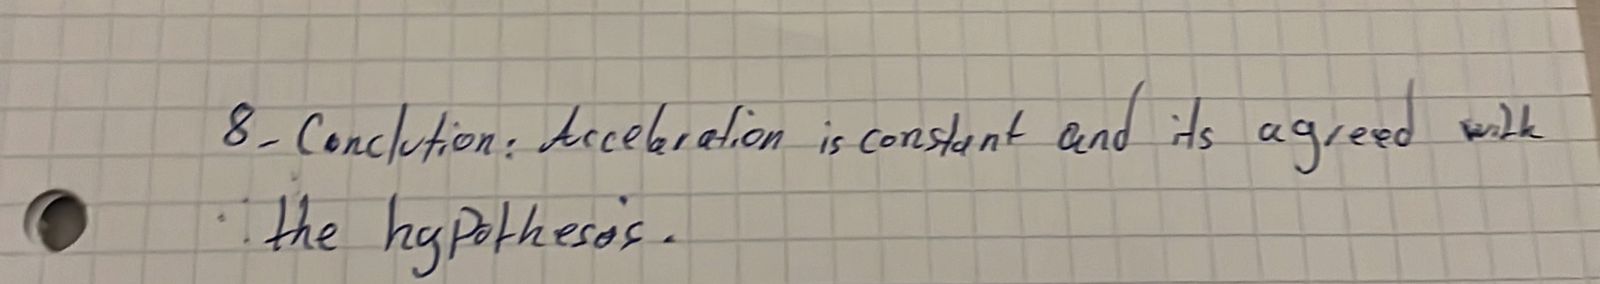 8- Conclution: Acceleration is constant and its agreed with
the hypothesis.